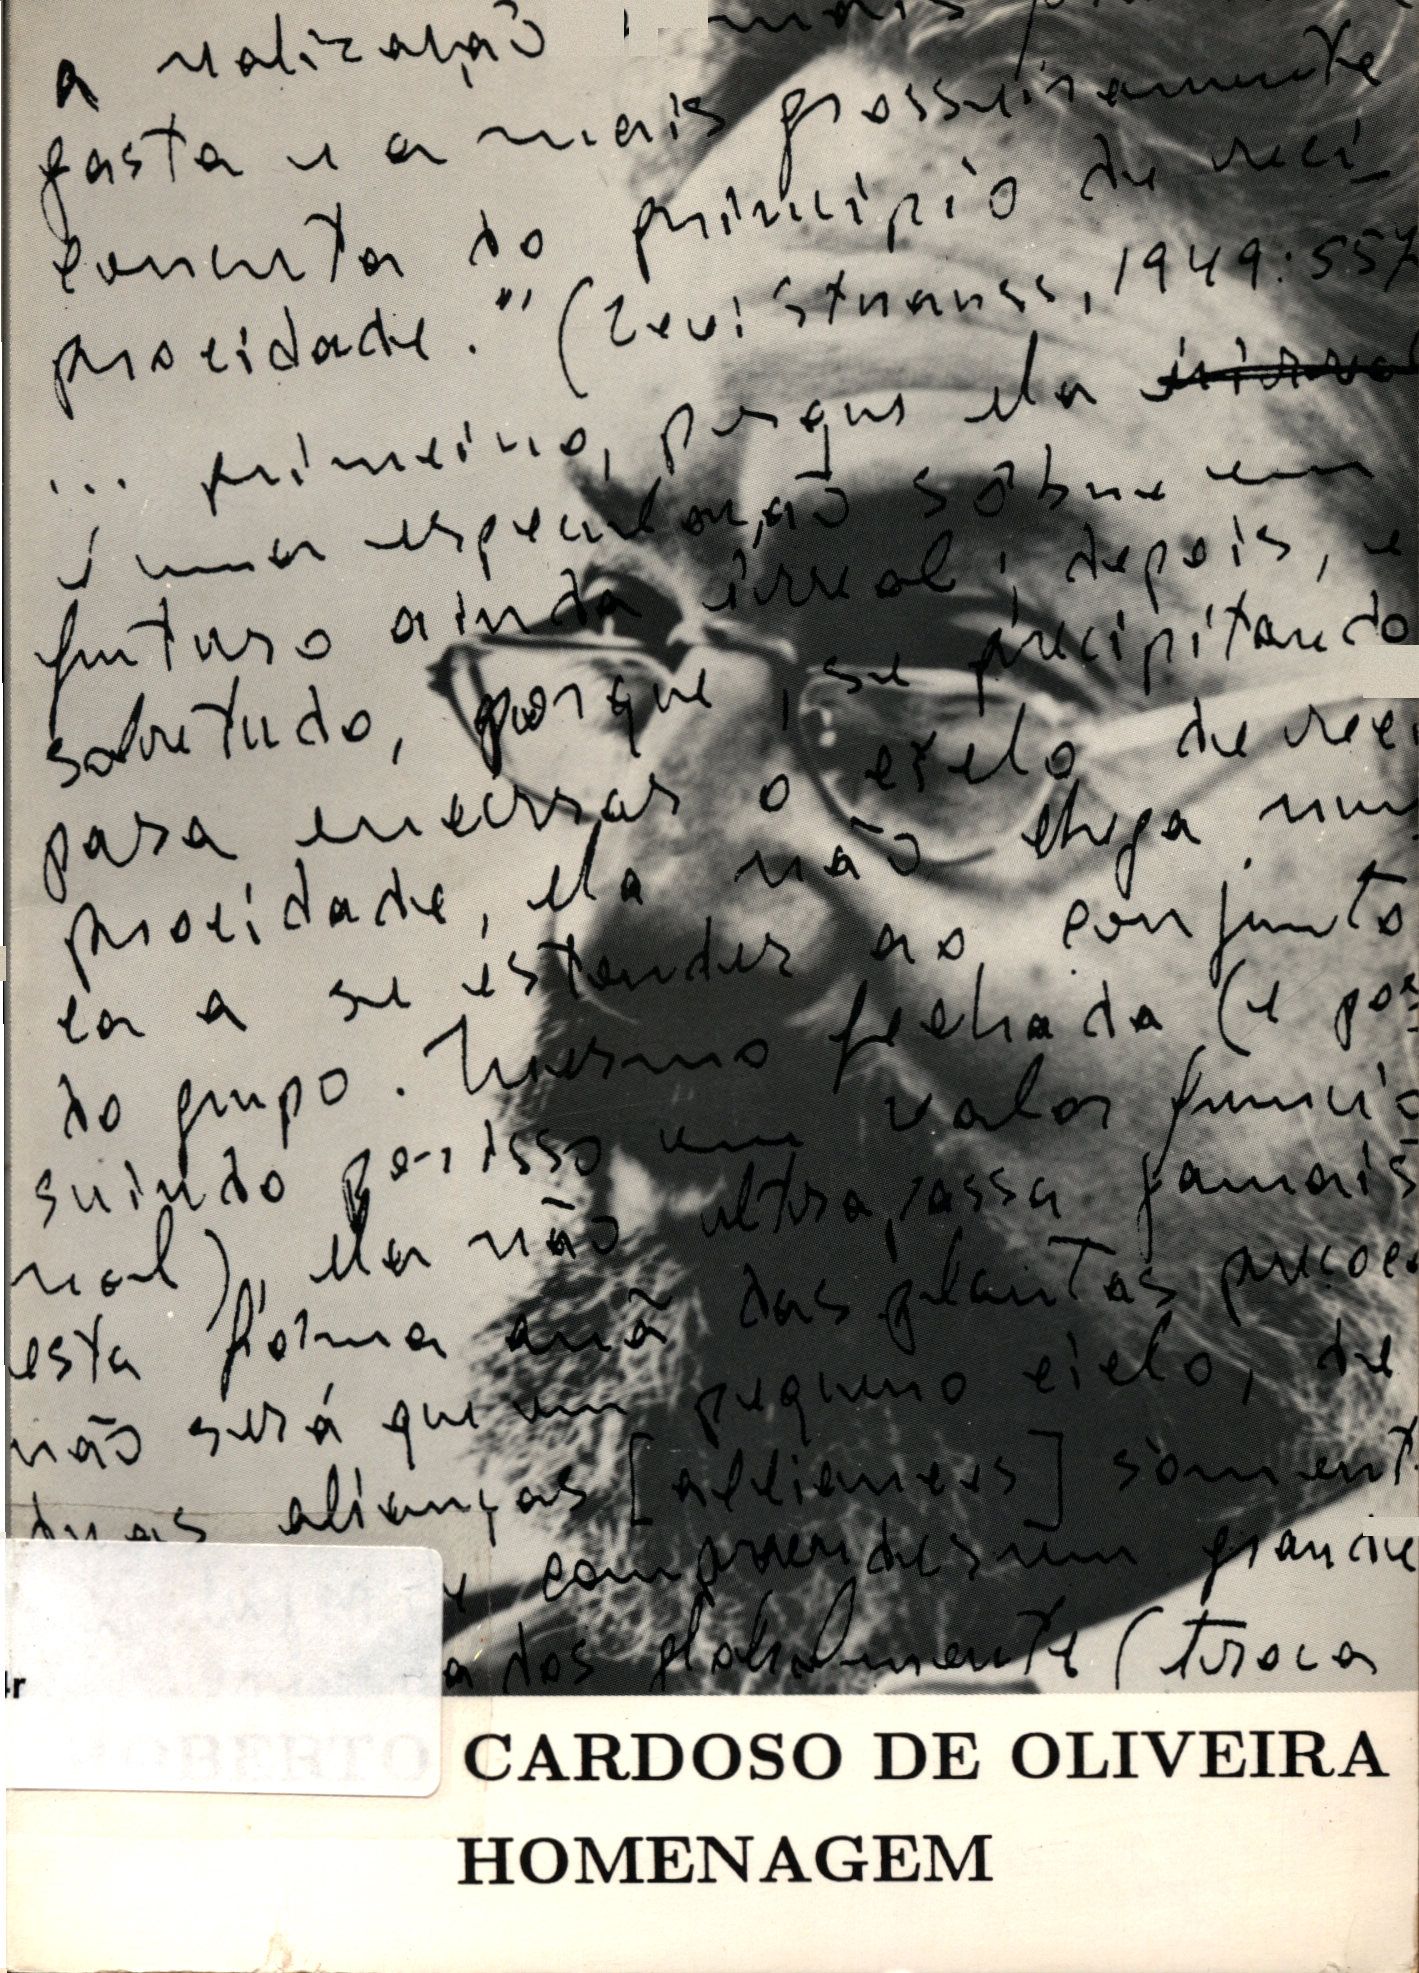 a realização mais
gasta e a mais grosseiramente
concreta do princípio de reci-
procidade." (Levi Strauss, 1949:557
... primeiro, porque ela
é uma especulação sôbre um
futuro ainda irreal; depois, e
sobretudo, porque, se precipitando
para encerrar o ciclo de reci
procidade, ela não chega nun
ca a se estender ao conjunto
do grupo. Mesmo fechada (e pos
suindo por isso um valor funcio
nal), ela não ultrapassa jamais
esta fórma anã das plantas precoces
não será que um pequeno ciclo, de
duas alianças [alliances] sòment
compreendes um grande
ados globalmente (troca
4r
ROBERTO CARDOSO DE OLIVEIRA
HOMENAGEM